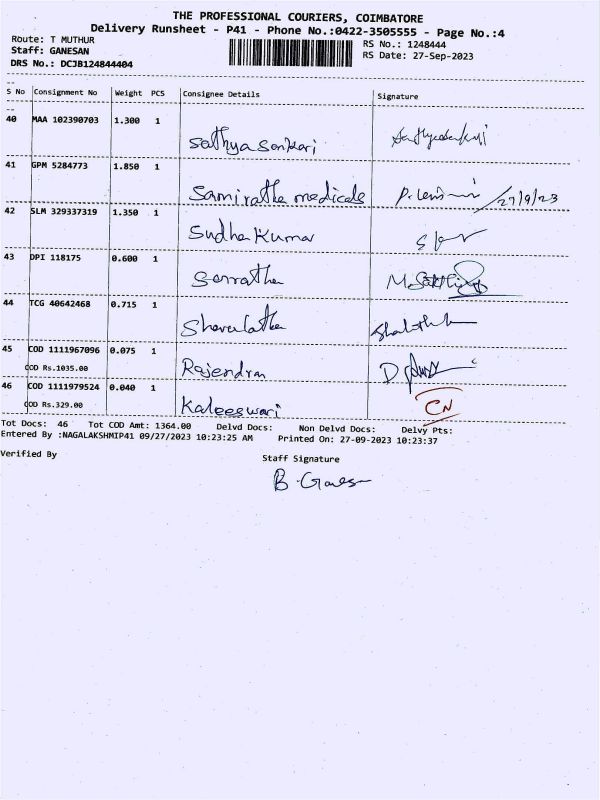 THE PROFESSIONAL COURIERS, COIMBATORE
Delivery Runsheet - P41 - Phone No.:0422-3505555 - Page No.:4
Route: T MUTHUR RS No.: 1248444
Staff: GANESAN RS Date: 27-Sep-2023
DRS No.: DCJB124844404
S No Consignment No Weight PCS Consignee Details Signature
40 MAA 102390703 1.300 1
Sathya Sankari
41 GPM 5284773 1.850 1
Samiratha medicals 27/9/23
42 SLM 329337319 1.350 1
Sudha Kumar
43 DPI 118175 0.600 1
44 TCG 40642468 0.715 1
45 COD 1111967096 0.075 1
COD Rs.1035.00 Rajendran
46 COD 1111979524 0.040 1 CN
COD Rs.329.00 Kaleeswari
Tot Docs: 46 Tot COD Amt: 1364.00 Delvd Docs: Non Delvd Docs: Delvy Pts:
Entered By :NAGALAKSHMIP41 09/27/2023 10:23:25 AM Printed On: 27-09-2023 10:23:37
Verified By Staff Signature
B. Ganes